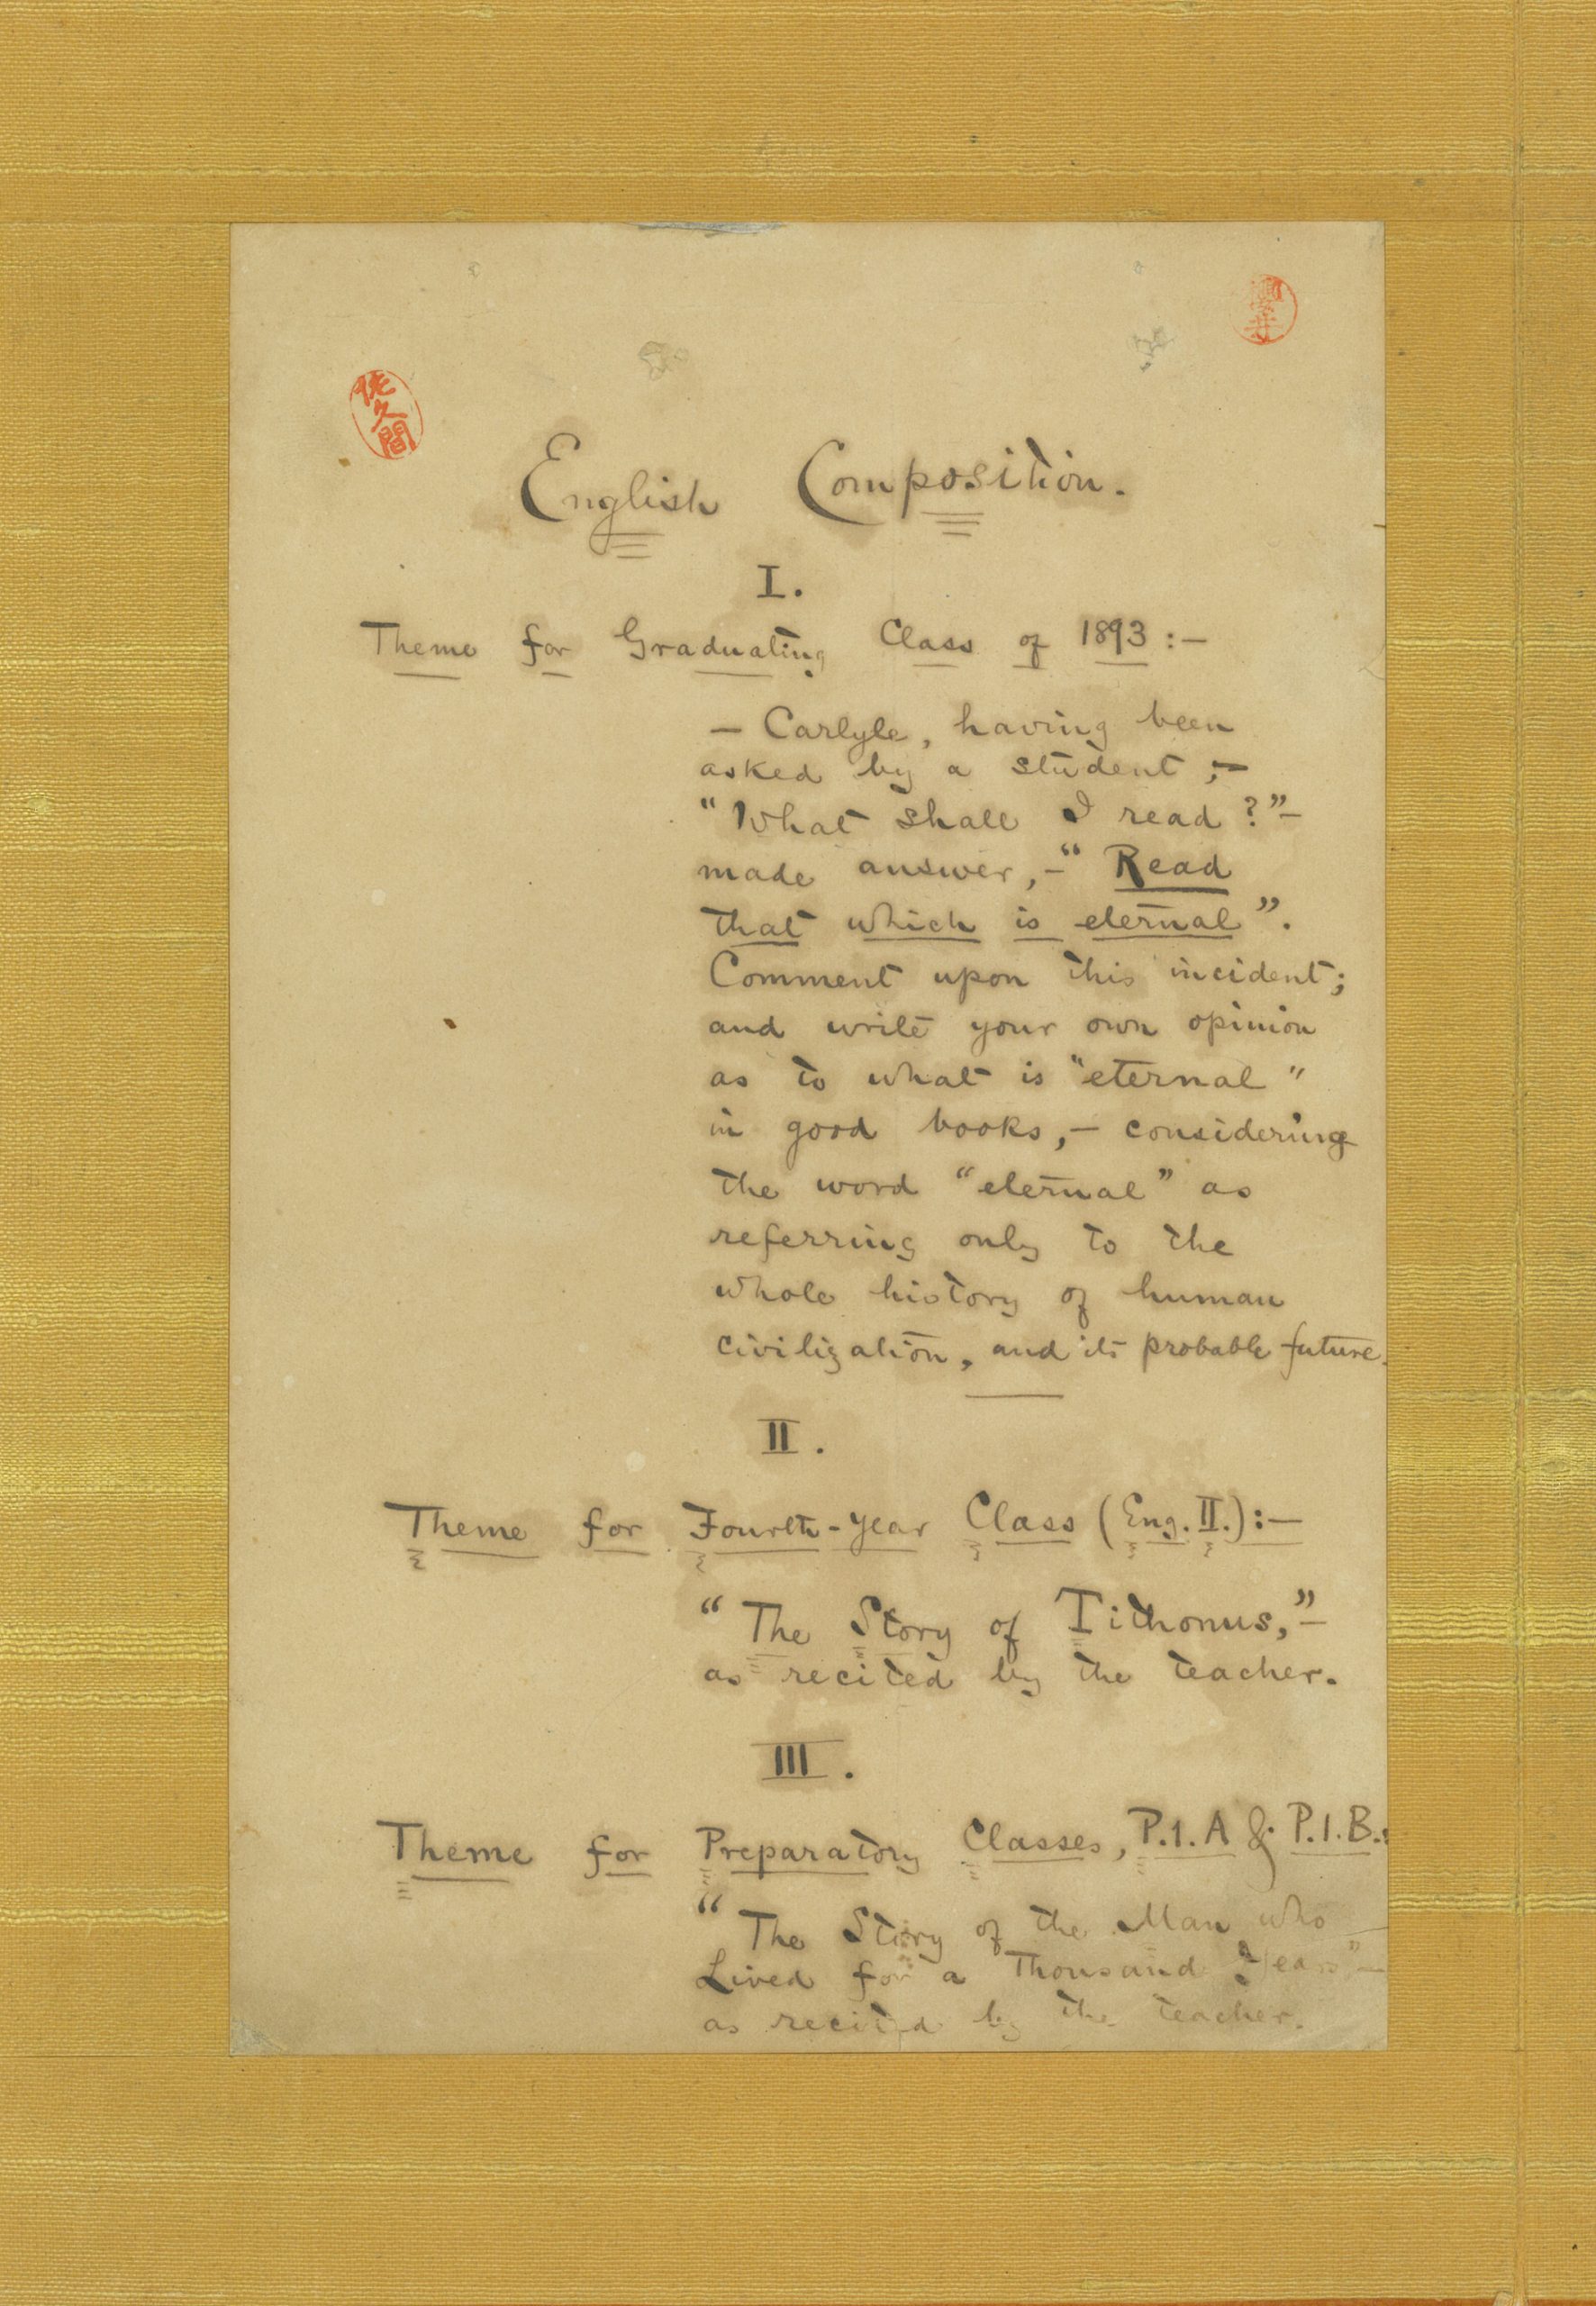 櫻井
佐久間
English Composition.
I.
Theme for Graduating Class of 1893:—
— Carlyle, having been
asked by a student,—
"What shall I read?"—
made answer,—"Read
that which is eternal".
Comment upon this incident;
and write your own opinion
as to what is "eternal"
in good books,— considering
the word "eternal" as
referring only to the
whole history of human
civilization, and its probable future.
II.
Theme for Fourth-Year Class (Eng. II.):—
"The Story of Tithonus,"—
as recited by the teacher.
III.
Theme for Preparatory Classes, P.1.A & P.1.B.:
"The Story of the Man who
Lived for a Thousand Years"—
as recited by the teacher.